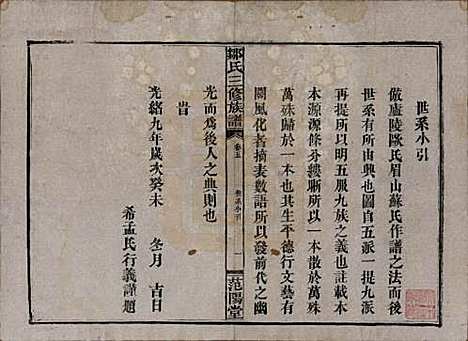 世系小引
倣廬陵歐氏眉山蘇氏作譜之法而後
世系有所由興也圖自五派一提九派
再提所以明五服九族之義也註載木
本源源條分縷晰所以一本散於萬殊
萬殊歸於一本也其生平德行文藝有
關風化者摘表數語所以發前代之幽
光而為後人之典則也
旹
光緒九年歲次癸未 冬月 吉日
希孟氏行義謹題
鄒氏三修族譜
卷五
世系小引
一
范陽堂